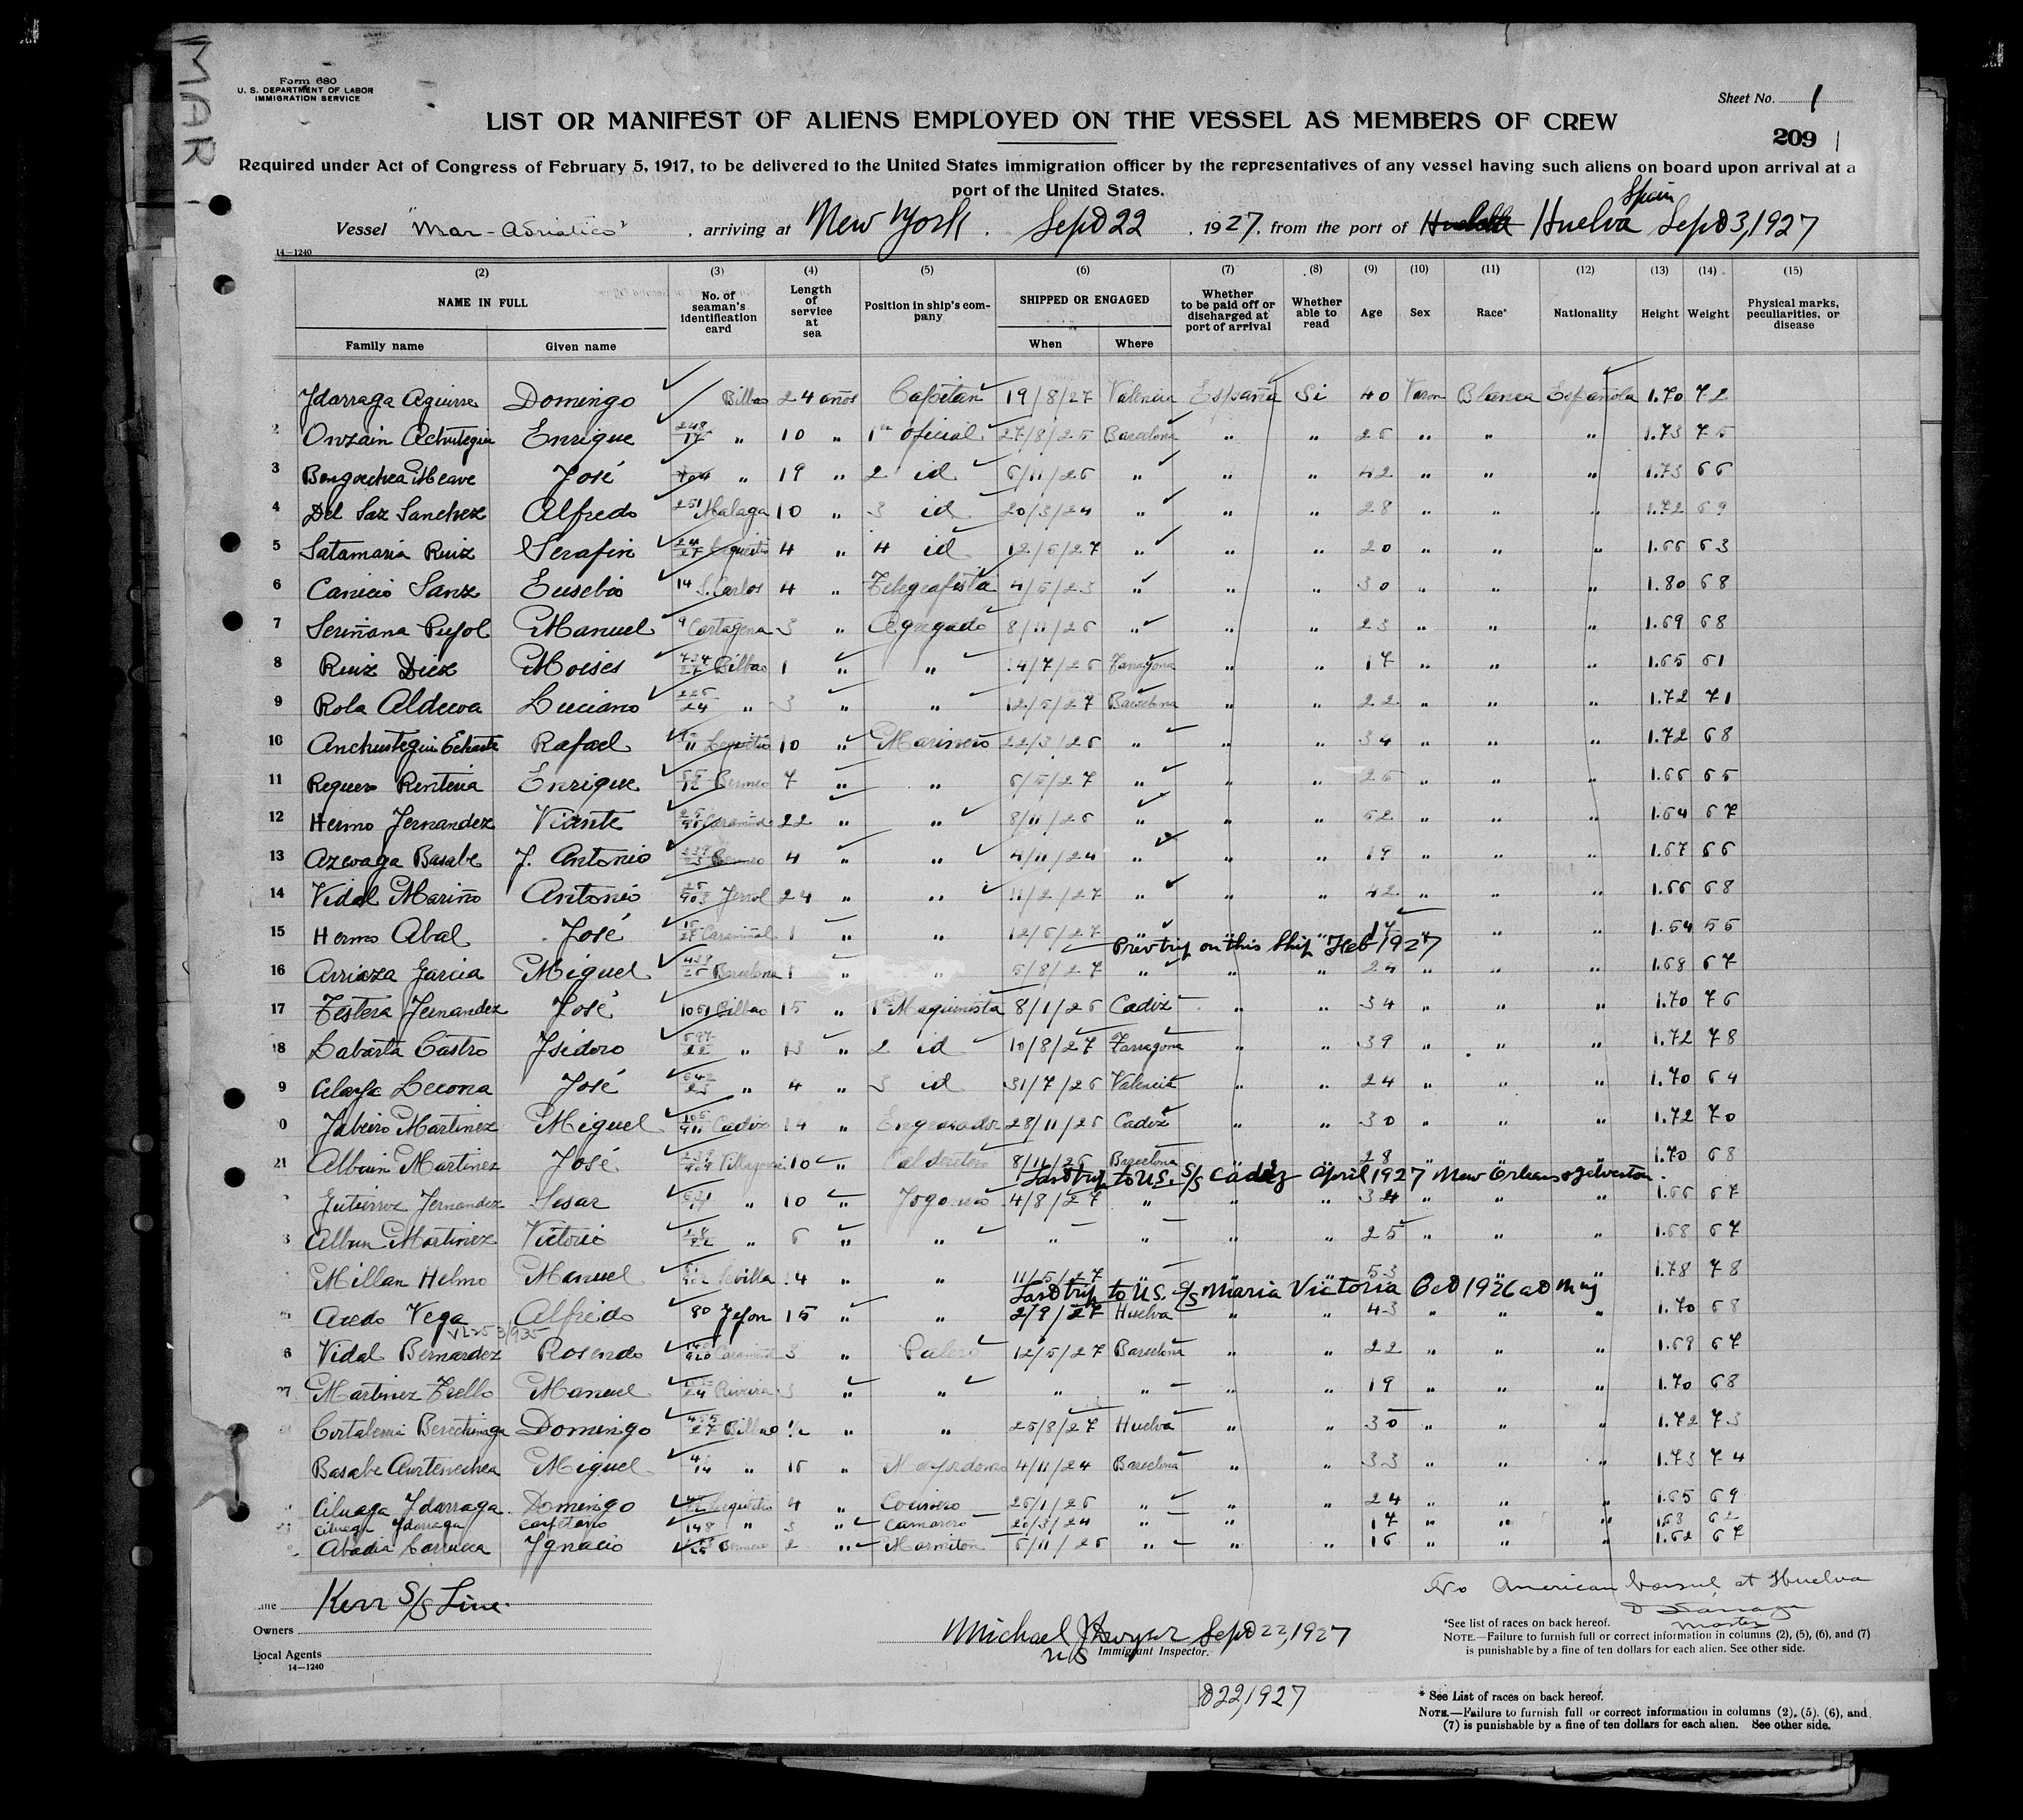 MAR
Form 680
U. S. DEPARTMENT OF LABOR
IMMIGRATION SERVICE
Sheet No. 1
LIST OR MANIFEST OF ALIENS EMPLOYED ON THE VESSEL AS MEMBERS OF CREW
209 1
Required under Act of Congress of February 5, 1917, to be delivered to the United States immigration officer by the representatives of any vessel having such aliens on board upon arrival at a
port of the United States.
Vessel "Mar-Adriatico", arriving at New York. Sept 22, 1927, from the port of Huelva Spain Sept 3, 1927
14—1240
(2) (3) (4) (5) (6) (7) (8) (9) (10) (11) (12) (13) (14) (15)
NAME IN FULL Family name Given name No. of seaman's identification card Length of service at sea Position in ship's company SHIPPED OR ENGAGED When Where Whether to be paid off or discharged at port of arrival Whether able to read Age Sex Race* Nationality Height Weight Physical marks, peculiarities, or disease
Ydarraga Aguirre Domingo Bilbao 24 años Capitan 19/8/27 Valencia España Si 40 Varon Blanca Española 1.70 72
2 Onzain Achutegui Enrique 248/17 " 10 " 1er oficial 27/8/25 Barcelona " " 26 " " " 1.73 75
3 Bengoechea Meave José " 19 " 2 id 6/11/26 " " " 42 " " " 1.73 66
4 Del Saz Sanchez Alfredo 251 Malaga 10 " 3 id 20/3/24 " " " 28 " " " 1.72 69
5 Satamaria Ruiz Serafin 24/27 Lequeitio 4 " 4 id 12/5/27 " " " 20 " " " 1.66 63
6 Canicio Sanz Eusebio 14 S. Carlos 4 " Telegrafista 4/5/23 " " " 30 " " " 1.80 68
7 Seriñana Pujol Manuel 9 Cartagena 3 " Agregado 8/11/26 " " " 23 " " " 1.69 68
8 Ruiz Diez Moises 734/27 Bilbao 1 " " 14/7/26 Tarragona " " 17 " " " 1.65 61
9 Rola Aldecoa Luciano 226/24 " 3 " " 12/5/27 Barcelona " " 22 " " " 1.72 71
10 Anchustegui Echarte Rafael Lequeitio 10 " Marinero 22/3/26 " " " 34 " " " 1.72 68
11 Reguero Renteria Enrique Bermeo 7 " " 6/5/27 " " " 26 " " " 1.66 65
12 Hermo Fernandez Vicente Caramiñal 22 " " 8/11/26 " " " 52 " " " 1.64 67
13 Azcoaga Basabe J. Antonio 339/23 Bermeo 4 " " 4/11/24 " " " 19 " " " 1.67 66
14 Vidal Mariño Antonio 25/903 Ferrol 24 " " 11/2/27 " " " 42 " " " 1.66 68
15 Hermo Abal José 15/27 Caramiñal 1 " " 12/5/27 " " " 17 " " " 1.54 55
Prev trip on this ship Feb 1927
16 Arrioza Garcia Miguel 438/26 Barcelona 1 " " 5/8/27 " " " 24 " " " 1.68 67
17 Testera Fernandez José 1051 Bilbao 15 " 1er Maquinista 8/1/26 Cadiz " " 34 " " " 1.70 76
18 Labarta Castro Ysidoro 597/22 " 13 " 2 id 10/8/27 Tarragona " " 39 " " " 1.72 78
9 Olarga Lecona José 642/23 " 4 " 3 id 31/7/26 Valencia " " 24 " " " 1.70 64
0 Jabeiro Martinez Miguel 105/911 Cadiz 14 " Engrasador 28/11/26 Cadiz " " 30 " " " 1.72 70
21 Albuin Martinez José Villagarcia 10 " Calderetero 8/11/26 Barcelona " " 28 " " " 1.70 68
Last trip to U.S. S/S Cadiz April 1927 New Orleans & Galveston.
Gutierrez Fernandez Sesar " 10 " Fogonero 4/8/27 " " " 34 " " " 1.66 67
3 Albuin Martinez Victorio " 6 " " " " " " 25 " " " 1.68 67
Millan Helmo Manuel Sevilla 14 " " 11/5/27 " " " 53 " " " 1.78 78
Last trip to U.S. S/S Maria Victoria Oct 1926 at NY
Acedo Vega Alfredo 80 Jejon 15 " " 2/9/27 Huelva " " 43 " " " 1.70 68
6 Vidal Bernardez Rosendo Caramiñal 3 " Palero 12/5/27 Barcelona " " 22 " " " 1.69 67
27 Martinez Trello Manuel Riveira 3 " " " " " " 19 " " " 1.70 68
Cortaberria Berechinaga Domingo 455/27 Bilbao ½ " " 25/8/27 Huelva " " 30 " " " 1.72 73
Basabe Aurtenechea Miguel 14 " 15 " Mayordomo 4/11/24 Barcelona " " 33 " " " 1.73 74
Ciluaga Ydarraga Domingo Lequeitio 4 " Cocinero 26/1/26 " " " 24 " " " 1.65 69
Ciluaga Ydarraga Cayetano 148 " 3 " Camarero 20/3/24 " " " 17 " " " 1.68 62
Abadia Larrucea Ygnacio Bermeo 2 " Marmiton 6/11/26 " " " 16 " " " 1.62 67
Line Kerr S/S Line.
Owners
Local Agents
14—1240
Michael J Dwyer Sept 22, 1927
US Immigrant Inspector.
No American Consul at Huelva
D Ydarraga
Master
*See list of races on back hereof.
NOTE.—Failure to furnish full or correct information in columns (2), (5), (6), and (7)
is punishable by a fine of ten dollars for each alien. See other side.
22, 1927
* See List of races on back hereof.
NOTE.—Failure to furnish full or correct information in columns (2), (5), (6), and
(7) is punishable by a fine of ten dollars for each alien. See other side.